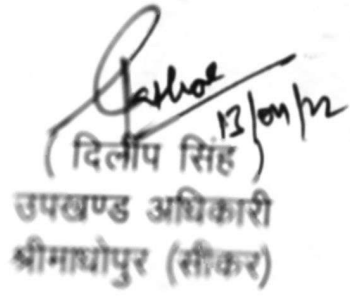 13/04/22
(दिलीप सिंह)
उपखण्ड अधिकारी
श्रीमाधोपुर (सीकर)